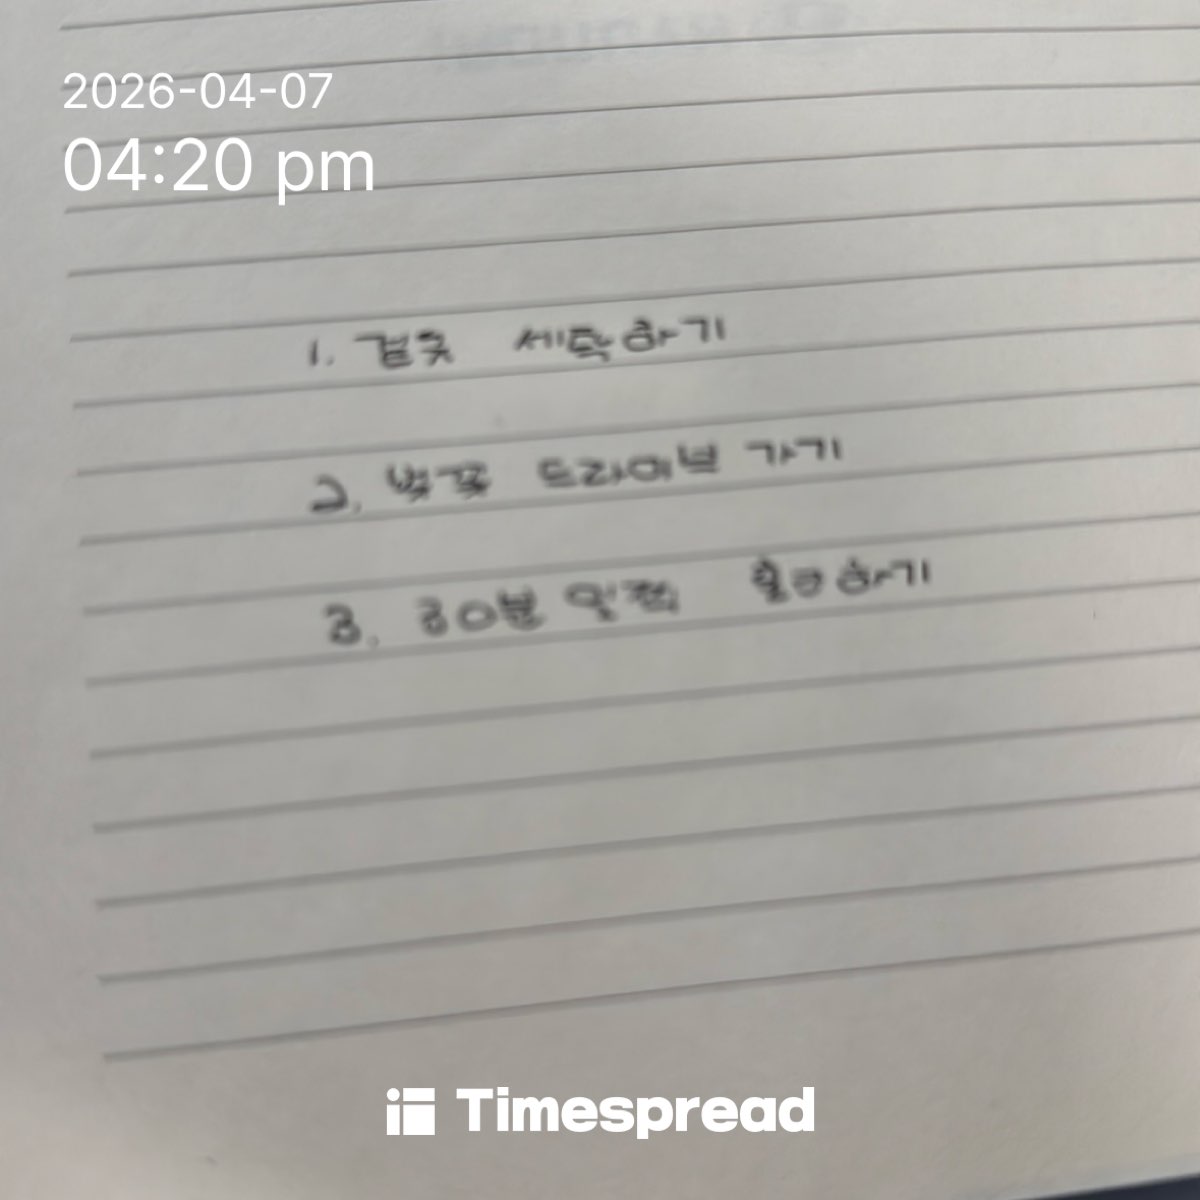 2026-04-07
04:20 pm
1. 겉옷 세탁하기
2. 벚꽃 드라이브 가기
3. 30분 일찍 출근하기
Timespread